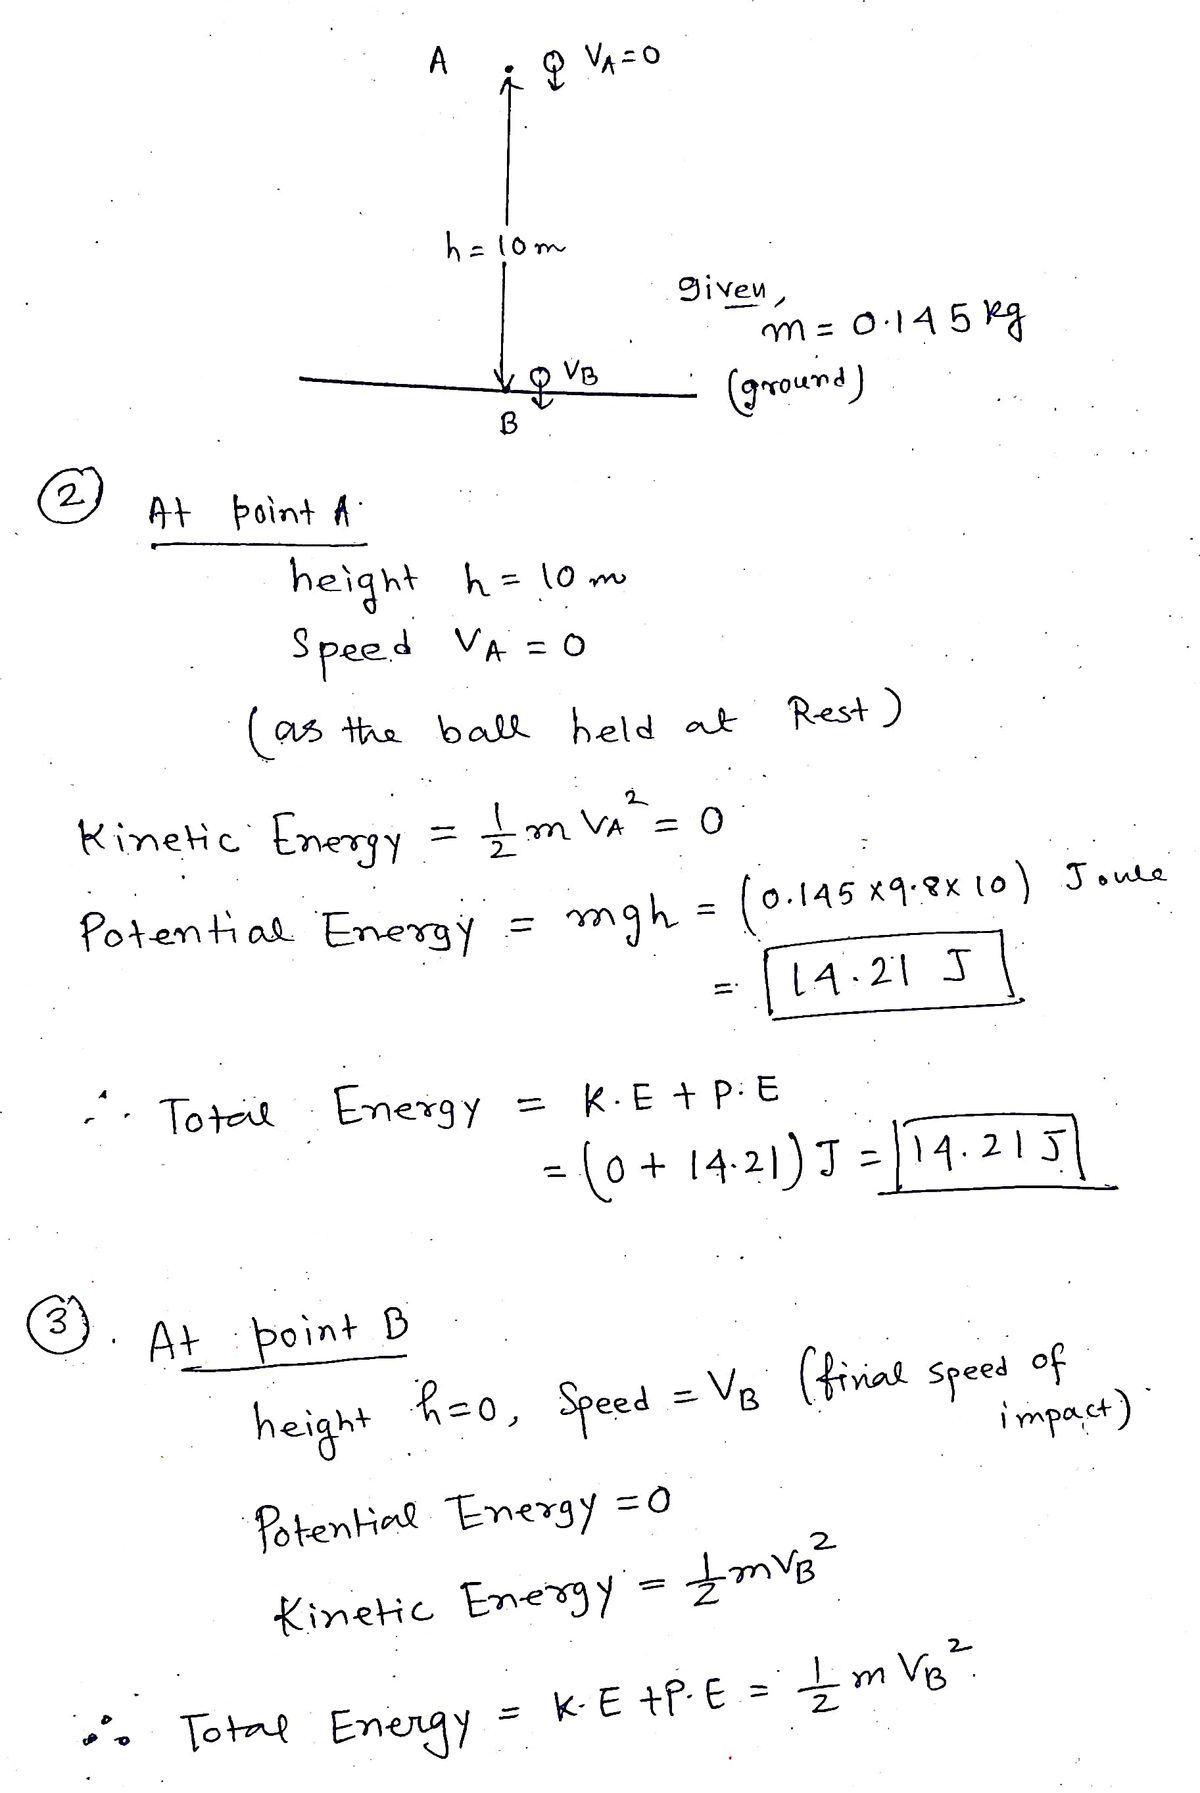 A V_A = 0
h = 10 m
given,
m = 0.145 kg
V_B
(ground)
B
② At point A.
height h = 10 m
Speed V_A = 0
(as the ball held at Rest)
Kinetic Energy = 1/2 m V_A² = 0
Potential Energy = mgh = (0.145 × 9.8 × 10) Joule
= 14.21 J
∴ Total Energy = K.E + P.E
= (0 + 14.21) J = 14.21 J
③. At point B
height h = 0, Speed = V_B (final speed of
impact)
Potential Energy = 0
Kinetic Energy = 1/2 m V_B²
∴ Total Energy = K.E + P.E = 1/2 m V_B².